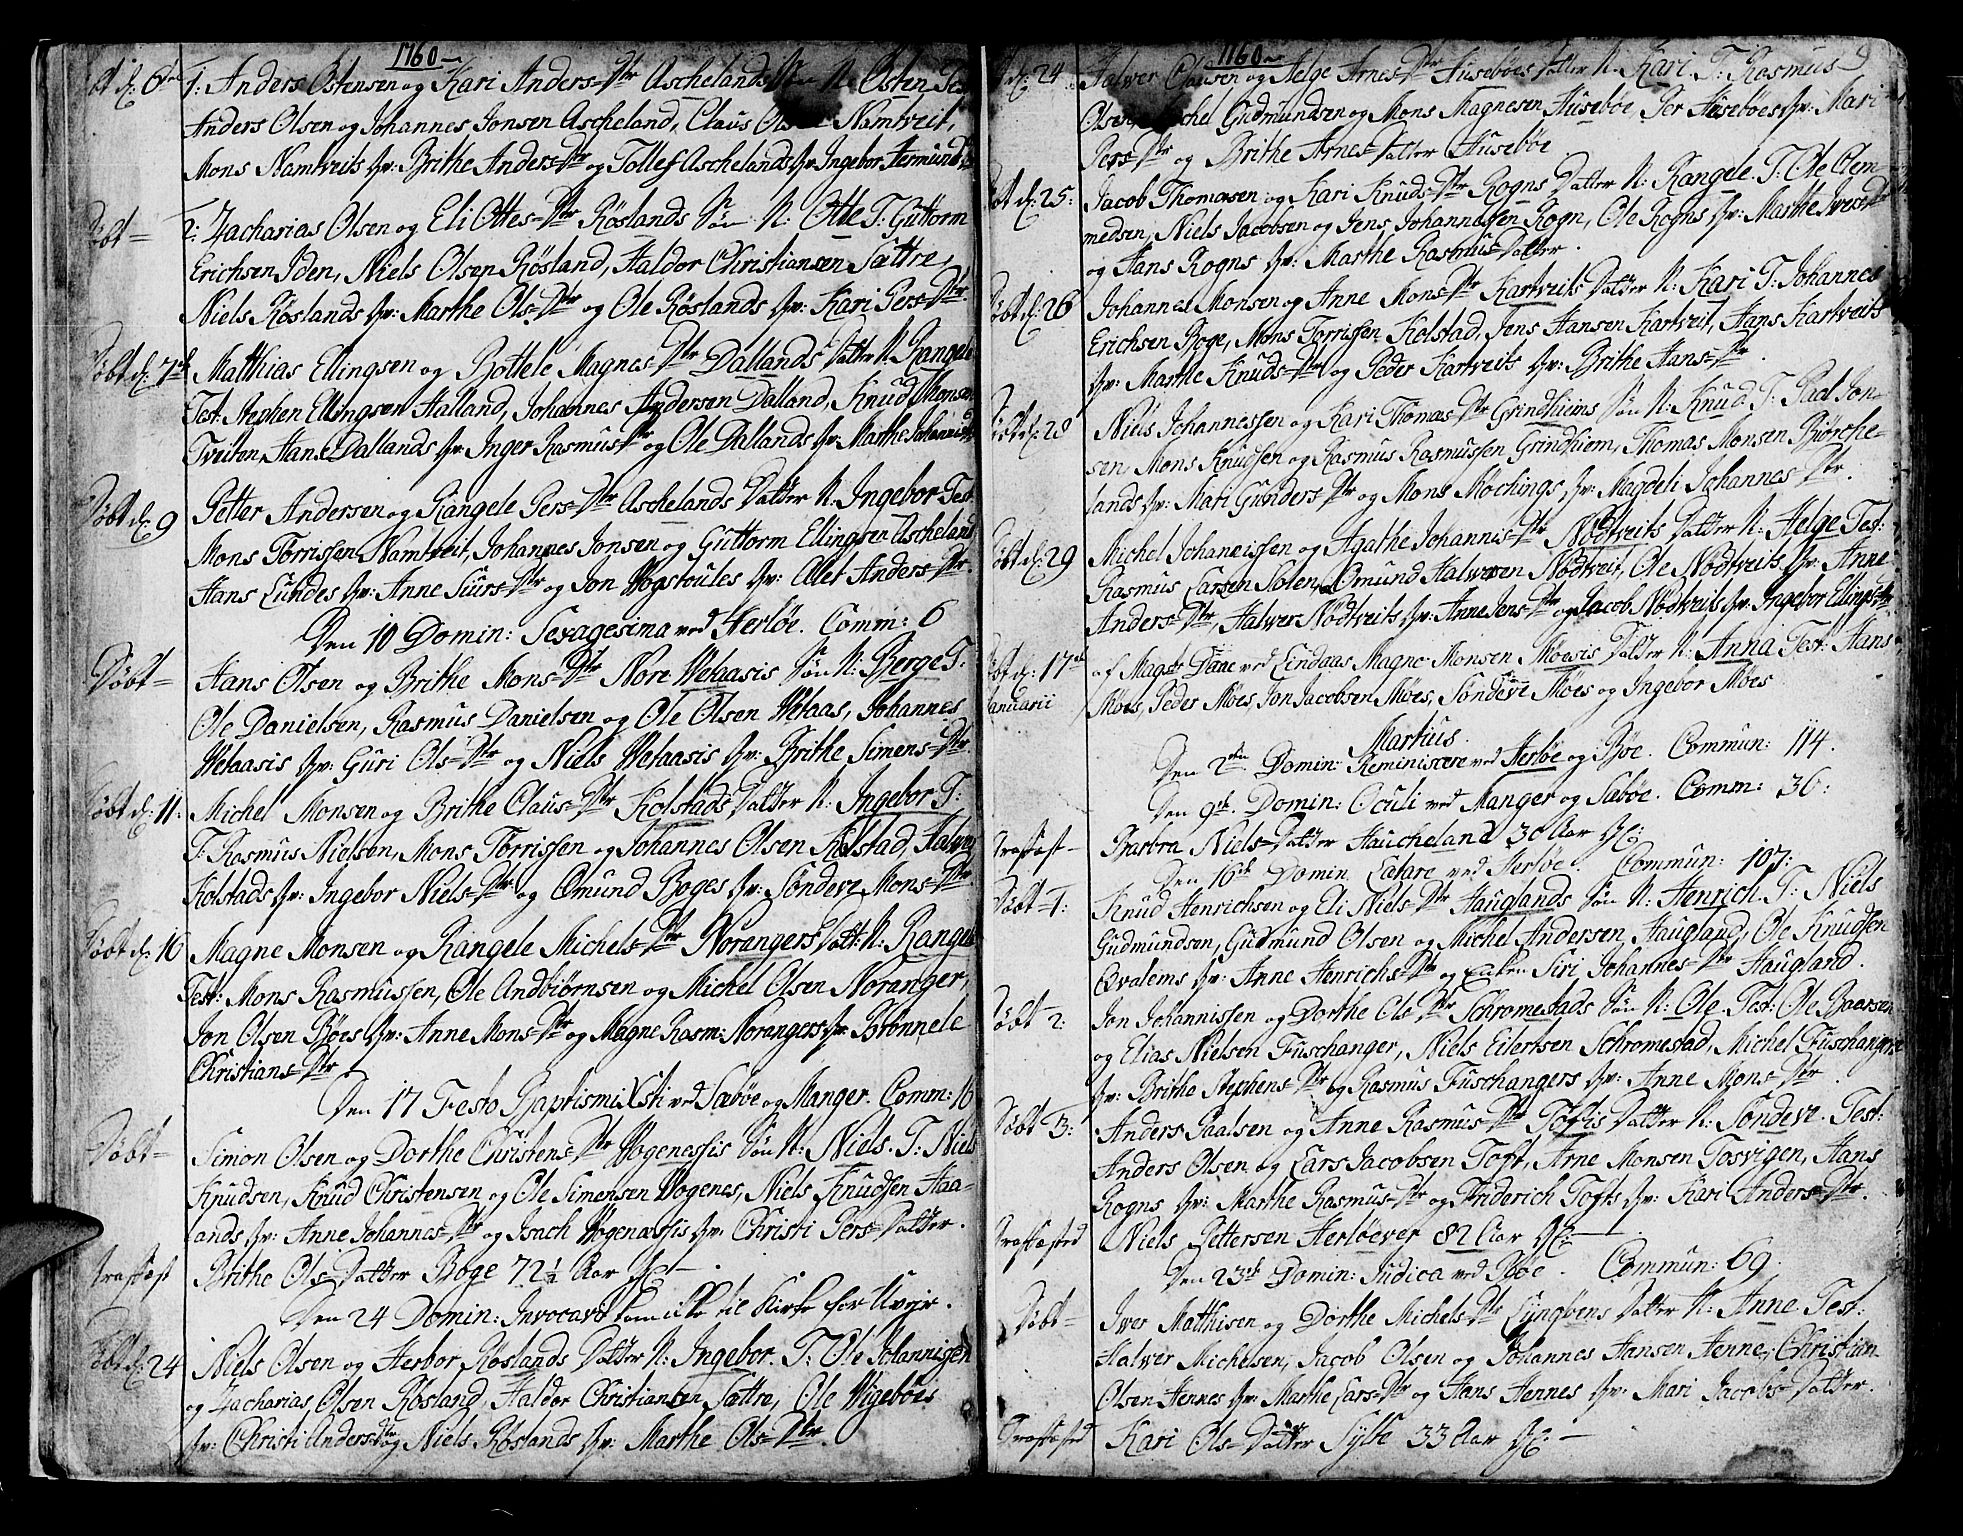 1760
Døbt d: 6te 1: Anders Ostensen og Kari Anders=Dtr Aschelands Søn N: Østen Test
Anders Olsen og Johannes Jonsen Ascheland, Claus Olsen Namtveit,
Mons Namtveits Hr: Brithe Anders=Dtr og Tollef Aschelands Hr: Ingebor Aermunds
Døbt= 2: Zacharias Olsen og Eli Ottes=Dtr Røslands Søn N: Otte T: Guttorm
Erichsen Iden, Niels Olsen Røsland, Haldor Christiansen Sættre,
Niels Røslands Hr: Marthe Ols=Dtr og Ole Røslands Hr: Kari Pers=Dtr
Døbt d: 7de Matthias Ellingsen og Bottele Magnes=Dtr Dallands Datter N: Rangele
Test: Stephen Ellingsen Halland, Johannes Andersen Dalland, Knud Monsen
Tveiten, Hans Dallands Hr: Inger Rasmus=Dtr og Ole Dallands Hr: Marthe Johannis
Døbt d: 9 Petter Andersen og Rangele Pers=Dtr Aschelands Datter N: Ingebor Test
Mons Torrissen Namtveit, Johannes Jonsen og Guttorm Ellingsen Ascheland
Hans Lundes Hr: Anne Siurs=Dtr og Jon Hopstoules Hr: Olet Anders=Dtr
Den 10 Domin: Sexagesima ved Herløe. Comm: 6
Døbt= Hans Olsen og Brithe Mons=Dtr Nore Vetaasis Søn N: Berge T:
Ole Danielsen, Rasmus Danielsen og Ole Olsen Vetaas, Johannes
Vetaasis Hr: Guri Ols=Dtr og Niels Vetaasis Hr: Brithe Simens=Dtr
Døbt d: 11: Michel Monsen og Brithe Claus=Dtr Kolstads Datter N: Ingebor T:
T: Rasmus Nielsen, Mons Torrissen og Johannes Olsen Kolstad, Halver
Kolstads Hr: Ingebor Niels=Dtr og Omund Boges Hr: Søndeve Mons=Dtr
Døbt d: 16 Magne Monsen og Rangele Michels=Dtr Norangers Datt: N: Rangele
Test: Mons Rasmussen, Ole Andbiørnsen og Michel Olsen Noranger,
Jon Olsen Bøes Hr: Anne Mons=Dtr og Magne Rasm: Norangers Hr: Brønnele
Christians=Dtr
Den 17 Festo Baptismi Xsti ved Sæbøe og Manger. Comm: 16
Døbt= Simon Olsen og Dorthe Christens=Dtr Vogenessis Søn N: Niels. T: Niels
Knudsen, Knud Christensen og Ole Simensen Vogenes, Niels Knudsen Haa-
lands Hr: Anne Johannes=Dtr og Isach Vogenæssis Hr: Christi Pers=Datter.
Brithe Ols=Datter Boge 72½ Aar
Den 24 Domin: Invocavit kom icke til Kirke for Uvejr.
Døbt d: 24 Niels Olsen og Herbor Røslands Datter N: Ingebor. T: Ole Johannissen
og Zacharias Olsen Røsland, Haldor Christiansen Sættre, Ole Vigebøes
Hr: Christi Anders=Dtr og Niels Røslands Hr: Marthe Ols=Dtr.
1760 9
d: 24 Halver Clausen og Helge Arnes=Dtr Husebøes Datter N: Kari. T: Rasmus
Olsen, Michel Gudmundsen og Mons Magnesen Husebøe, Per Husebøes Hr: Mari
Pers=Dtr og Brithe Arnes=Datter Husebøe
Døbt d: 25: Jacob Thomasen og Kari Knuds=Dtr Rogns Datter N: Rangele. T: Ole Clem-
medsen, Niels Jacobsen og Jens Johannesen Rogn, Ole Rogns Hr: Marthe Ivers=Dtr
og Hans Rogns Hr: Marthe Rasmus=Datter.
Døbt d: 26 Johannes Monsen og Anne Mons=Dtr Kartveits Datter N: Kari T: Johannes
Erichsen Boge, Mons Torrissen Kolstad, Jens Hansen Kartveit, Hans Kartveits
Hr: Marthe Knuds=Dtr og Peder Kartveits Hr: Brithe Hans=Dtr.
Døbt d: 28 Niels Johannessen og Kari Thomæs=Dtr Grindhiems Søn N: Knud T: Paal Jon-
sen, Mons Knudsen og Rasmus Rasmussen Grindhiem, Thomas Monsen Biørche-
lands Hr: Mari Gunders=Dtr og Mons Mochings Hr: Magdeli Johannes=Dtr.
Døbt d: 29 Michel Johannissen og Agathe Johannis=Dtr Nødtveits Datter N: Helge Test:
Rasmus Larsen Solem, Omund Halversen Nødtveit, Ole Nødtveits Hr: Anne
Anders=Dtr, Halver Nødtveits Hr: Anne Jens=Dtr og Jacob Nødtveits Hr: Ingebor Ellings=Dtr
Døbt d: 17de af Magstr Daae ved Eindaas Magne Monsen Moesis Datter N: Anna Test: Hans
Januarii Møes, Peder Møes, Jon Jacobsen Møes, Søndeve Møes og Ingebor Møes
Martius.
Den 2den Domin: Reminiscere ved Herløe og Bøe. Commun: 114.
Den 9de. Domin: Oculi ved Manger og Sæbøe. Comm: 36:
Barbra Niels=Datter Haucheland 30 Aar
Den 16de Domin Lætare ved Herløe. Commun: 107:
Døbt 1: Knud Henrichsen og Eli Niels=Dtr Hauglands Søn N: Henrich. T: Niels
Gudmundsen, Gudmund Olsen og Michel Andersen Haugland, Ole Knudsen
Qvalems Hr: Anne Henrichs=Dtr og Enken Siri Johannes=Dtr Haugland.
Døbt 2: Jon Johannissen og Dorthe Ols=Dtr Schromestads Søn N: Ole. Test: Ole Baarsen
og Elias Nielsen Fuschanger, Niels Eilertsen Schromestad, Michel Fuschangers
Hr: Brithe Stephens=Dtr og Rasmus Fuschangers Hr: Anne Mons=Dtr.
Døbt 3: Anders Paalsen og Anne Rasmus=Dtr Toftis Datter N: Søndeve. Test:
Anders Olsen og Lars Jacobsen Toft, Arne Monsen Tosvigen, Hans
Rogns Hr: Marthe Rasmus=Dtr og Friderich Tofts Hr: Kari Anders=Dtr.
Niels Pettersen Herløever 82 Aar
Den 23de Domin: Judica ved Bøe. Commun: 69.
Døbt= Iver Matthisen og Dorthe Michels=Dtr Lyngøens Datter N: Anne Test:
Halver Michelsen, Jacob Olsen og Johannes Hansen Henne, Christian
Olsen Hennes Hr: Marthe Lars=Dtr og Hans Hennes Hr: Mari Jacobs=Datter.
Kari Ols=Datter Sylte 33 Aar